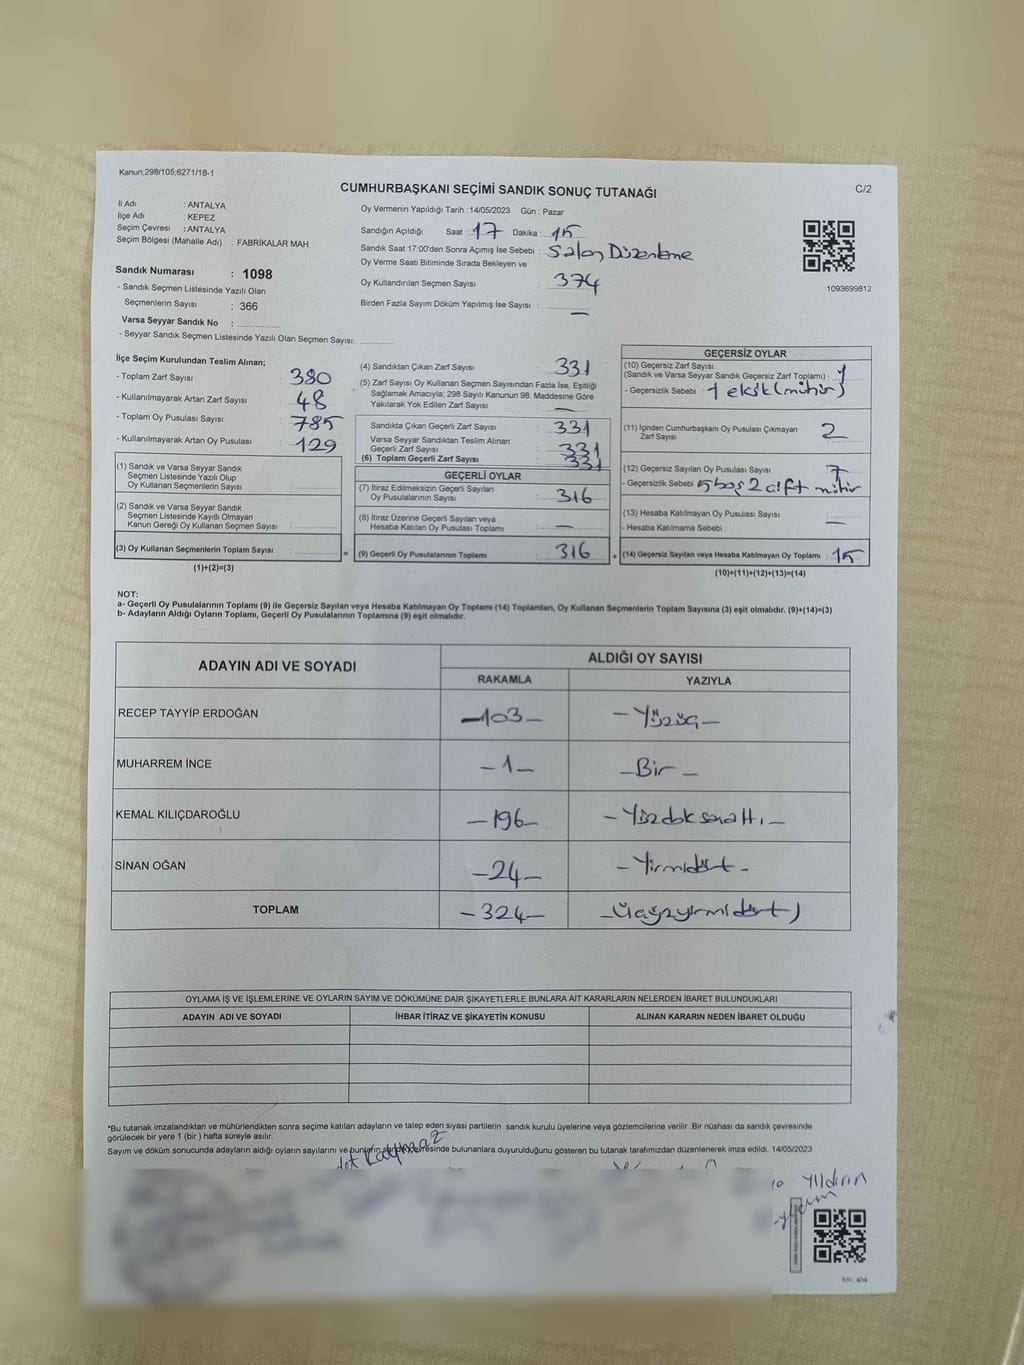 Kanun;298/105;6271/18-1
CUMHURBAŞKANI SEÇİMİ SANDIK SONUÇ TUTANAĞI
C/2
İl Adı : ANTALYA
İlçe Adı : KEPEZ
Seçim Çevresi : ANTALYA
Seçim Bölgesi (Mahalle Adı) : FABRİKALAR MAH.
Sandık Numarası : 1098
- Sandık Seçmen Listesinde Yazılı Olan
Seçmenlerin Sayısı : 366
Varsa Seyyar Sandık No :
- Seyyar Sandık Seçmen Listesinde Yazılı Olan Seçmen Sayısı:
Oy Vermenin Yapıldığı Tarih :14/05/2023 Gün : Pazar
Sandığın Açıldığı Saat : 17 Dakika : 15
Sandık Saat 17:00'den Sonra Açımış İse Sebebi : Salon Düzenleme
Oy Verme Saati Bitiminde Sırada Bekleyen ve
Oy Kullandırılan Seçmen Sayısı : 374
Birden Fazla Sayım Döküm Yapılmış İse Sayısı : —
1093699812
İlçe Seçim Kurulundan Teslim Alınan;
- Toplam Zarf Sayısı : 380
- Kullanılmayarak Artan Zarf Sayısı : 48
- Toplam Oy Pusulası Sayısı : 785
- Kullanılmayarak Artan Oy Pusulası : 129
(1) Sandık ve Varsa Seyyar Sandık
Seçmen Listesinde Yazılı Olup
Oy Kullanan Seçmenlerin Sayısı :
(2) Sandık ve Varsa Seyyar Sandık
Seçmen Listesinde Kayıtlı Olmayan
Kanun Gereği Oy Kullanan Seçmen Sayısı :
(3) Oy Kullanan Seçmenlerin Toplam Sayısı :
(1)+(2)=(3)
(4) Sandıktan Çıkan Zarf Sayısı : 331
(5) Zarf Sayısı Oy Kullanan Seçmen Sayısından Fazla İse, Eşitliği
Sağlamak Amacıyla; 298 Sayılı Kanunun 98. Maddesine Göre
Yakılarak Yok Edilen Zarf Sayısı : —
Sandıkta Çıkan Geçerli Zarf Sayısı : 331
Varsa Seyyar Sandıktan Teslim Alınan
Geçerli Zarf Sayısı : 331
(6) Toplam Geçerli Zarf Sayısı : 331
GEÇERLİ OYLAR
(7) İtiraz Edilmeksizin Geçerli Sayılan
Oy Pusulalarının Sayısı : 316
(8) İtiraz Üzerine Geçerli Sayılan veya
Hesaba Katılan Oy Pusulası Toplamı : —
= (9) Geçerli Oy Pusulalarının Toplamı : 316
GEÇERSİZ OYLAR
(10) Geçersiz Zarf Sayısı
(Sandık ve Varsa Seyyar Sandık Geçersiz Zarf Toplamı) :
- Geçersizlik Sebebi : 1 eksik (mühür)
(11) İçinden Cumhurbaşkanı Oy Pusulası Çıkmayan
Zarf Sayısı : 2
(12) Geçersiz Sayılan Oy Pusulası Sayısı : 7
- Geçersizlik Sebebi : 5 boş 2 çift mühür
(13) Hesaba Katılmayan Oy Pusulası Sayısı : —
- Hesaba Katılmama Sebebi :
+ (14) Geçersiz Sayılan veya Hesaba Katılmayan Oy Toplamı : 15
(10)+(11)+(12)+(13)=(14)
NOT:
a- Geçerli Oy Pusulalarının Toplamı (9) ile Geçersiz Sayılan veya Hesaba Katılmayan Oy Toplamı (14) Toplamları, Oy Kullanan Seçmenlerin Toplam Sayısına (3) eşit olmalıdır. (9)+(14)=(3)
b- Adayların Aldığı Oyların Toplamı, Geçerli Oy Pusulalarının Toplamına (9) eşit olmalıdır.
ADAYIN ADI VE SOYADI
ALDIĞI OY SAYISI
RAKAMLA YAZIYLA
RECEP TAYYİP ERDOĞAN –103– –Yüzüç–
MUHARREM İNCE –1– –Bir–
KEMAL KILIÇDAROĞLU –196– –Yüzdoksanaltı–
SİNAN OĞAN –24– –Yirmidört–
TOPLAM –324– –Üçyüzyirmidört)
OYLAMA İŞ VE İŞLEMLERİNE VE OYLARIN SAYIM VE DÖKÜMÜNE DAİR ŞİKAYETLERLE BUNLARA AİT KARARLARIN NELERDEN İBARET BULUNDUKLARI
ADAYIN ADI VE SOYADI İHBAR İTİRAZ VE ŞİKAYETİN KONUSU ALINAN KARARIN NEDEN İBARET OLDUĞU
*Bu tutanak imzalandıktan ve mühürlendikten sonra seçime katılan adayların ve talep eden siyasi partilerin sandık kurulu üyelerine veya gözlemcilerine verilir. Bir nüshası da sandık çevresinde
görülecek bir yere 1 (bir) hafta süreyle asılır.
Sayım ve döküm sonucunda adayların aldığı oyların sayılarını ve bunların resinde bulunanlara duyurulduğunu gösteren bu tutanak tarafımızdan düzenlenerek imza edildi. 14/05/2023
Yıldırım